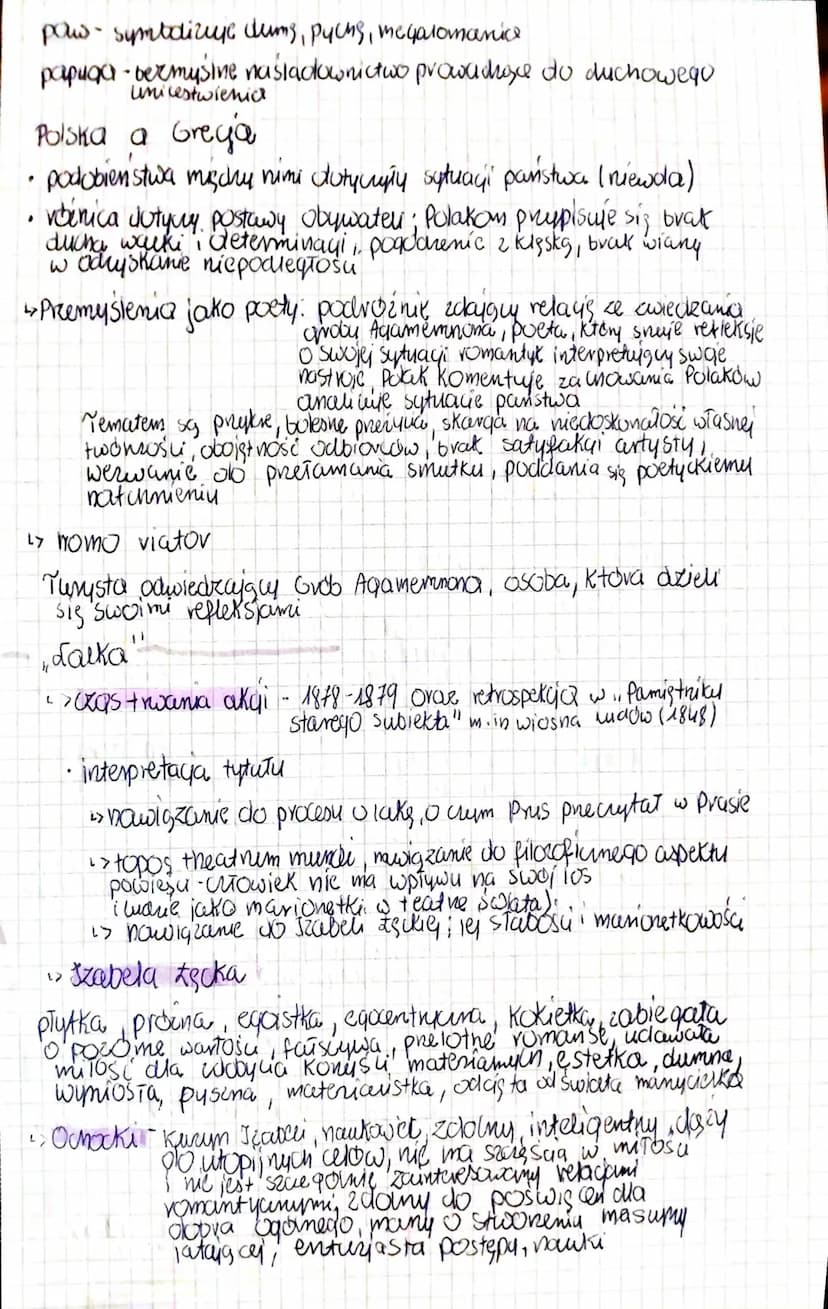 paw - symbolizuje dumę, pychę, megalomanię
papuga - bezmyślne naśladownictwo prowadzące do duchowego
unicestwienia
Polska a Grecja
• podobieństwa między nimi dotyczyły sytuacji państwa (niewola)
• różnica dotyczy postawy obywateli; Polakom przypisuje się brak
ducha walki i determinacji, pogodzenie z klęską, brak wiary
w odzyskanie niepodległości
↳ Przemyślenia jako poety: podróżnik zdający relację ze zwiedzania
groby Agamemnona, poeta, który snuje refleksje
o swojej sytuacji romantyk interpretujący swoje
nastroje, Polak komentuje zachowania Polaków
analizuje sytuacje państwa
Tematem są przykre, bolesne przeżycia, skarga na niedoskonałość własnej
twórczości, obojętność odbiorców, brak satysfakcji artysty,
wezwanie do przełamania smutku, poddania się poetyckiemu
natchnieniu
↳ homo viator
Turysta odwiedzający Grób Agamemnona, osoba, która dzieli
się swoimi refleksjami
„Lalka"
↳ czas trwania akcji - 1878-1879 oraz retrospekcja w „Pamiętniku
starego subiekta" m.in wiosna ludów (1848)
• interpretacja tytułu
↳ nawiązanie do procesu o lalkę, o czym Prus przeczytał w Prasie
↳ topos theatrum mundi, nawiązanie do filozoficznego aspektu
powieści - człowiek nie ma wpływu na swój los
(ludzie jako marionetki w teatrze świata);
↳ nawiązanie do Izabeli Łęckiej; jej słabości i marionetkowości
↳ Izabela Łęcka
płytka, próżna, egoistka, egocentryczna, kokietka, zabiegała
o pozorne wartości, fałszywa, przelotne romanse, udawała
miłość dla zdobycia korzyści materialnych, estetka, dumna,
wyniosła, pyszna, materialistka, odcięta od świata marzycielka
↳ Ochocki - kuzyn Izabeli, naukowiec, zdolny, inteligentny, dąży
do utopijnych celów, nie ma szczęścia w miłości
i nie jest szczególnie zainteresowany relacjami
romantycznymi, zdolny do poświęceń dla
dobra ogólnego, marzy o stworzeniu maszyny
latającej, entuzjasta postępu, nauki